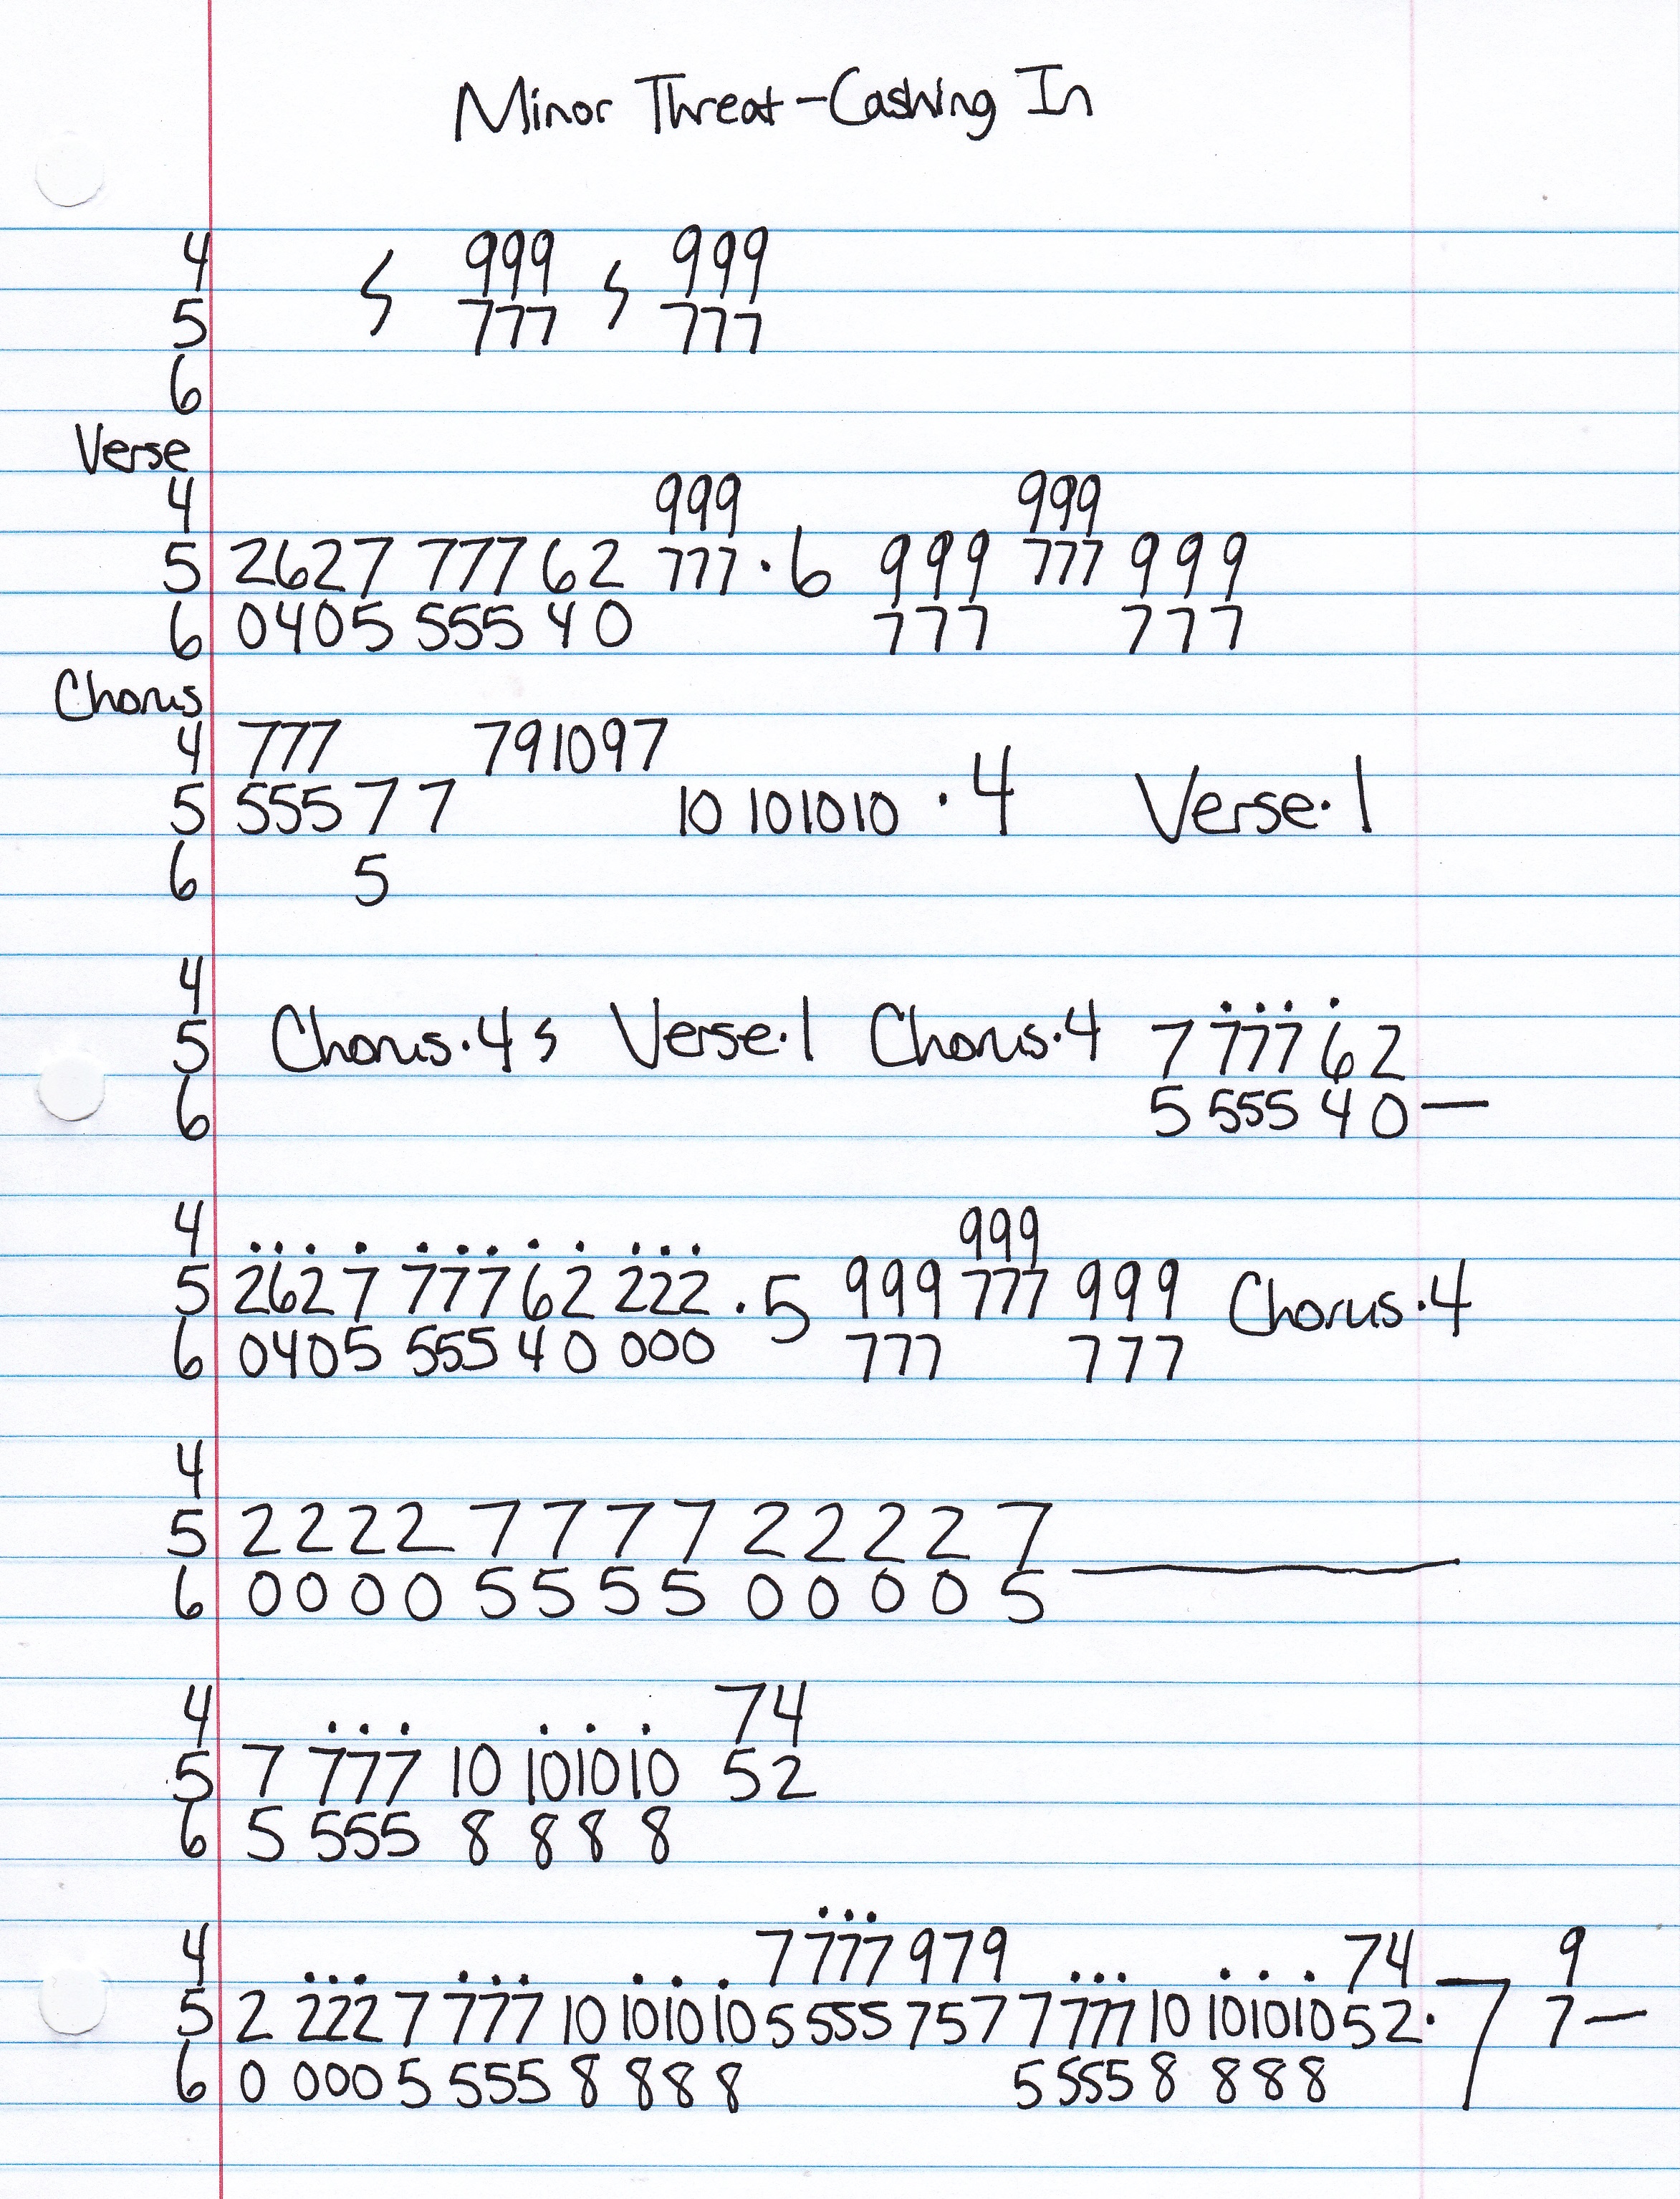 Minor Threat - Cashing In
4 𝄽 999 𝄽 999
5 777 777
6
Verse
4 999 999
5 2627 777 62 777 · 6 999 777 999
6 0405 555 40 777 777
Chorus
4 777 791097
5 555 7 7 10 101010 · 4 Verse · 1
6 5
4
5 Chorus · 4 𝄽 Verse · 1 Chorus · 4 7 777 62
6 5 555 40 —
4 999
5 2627 777 62 222 · 5 999 777 999 Chorus · 4
6 0405 555 40 000 777 777
4
5 2222 7777 2222 7
6 0000 5555 0000 5 —
4 74
5 7 777 10 101010 52
6 5 555 8 888
4 7 777 979 74 9
5 2 222 7 777 10 101010 5 555 757 7 777 10 101010 52 · 7 7 —
6 0 000 5 555 8 888 5 555 8 888